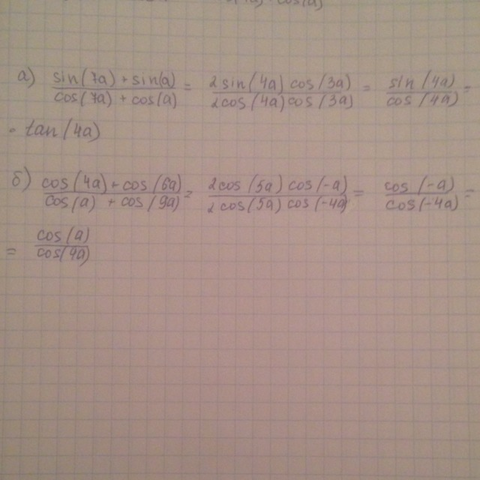 а) sin(7a) + sin(a) / cos(7a) + cos(a) = 2 sin(4a) cos(3a) / 2cos(4a) cos(3a) = sin(4a) / cos(4a) =
= tan(4a)
б) cos(4a) + cos(6a) / cos(a) + cos(9a) = 2cos(5a) cos(-a) / 2cos(5a) cos(-4a) = cos(-a) / cos(-4a) =
= cos(a) / cos(4a)